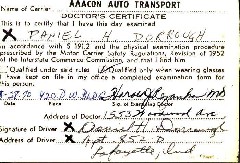 Name of Carrier AAACON AUTO TRANSPORT
DOCTOR'S CERTIFICATE
This is to certify that I have this day examined
X DANIEL H DORROUGH
in accordance with § 191.2 and the physical examination procedure
prescribed by the Motor Carrier Safety Regulations, Revision of 1952
of the Interstate Commerce Commission, and that I find him
Qualified under said rules Qualified only when wearing glasses
I have kept on file in my office a completed examination form for
this person.
(Date) (Place) Sig. of Examining Doctor
Address of Doctor 1553 Woodward Ave
Signature of Driver X Daniel H Dorrough
Address of Driver X Apt 852 D
Lafayette, Ind